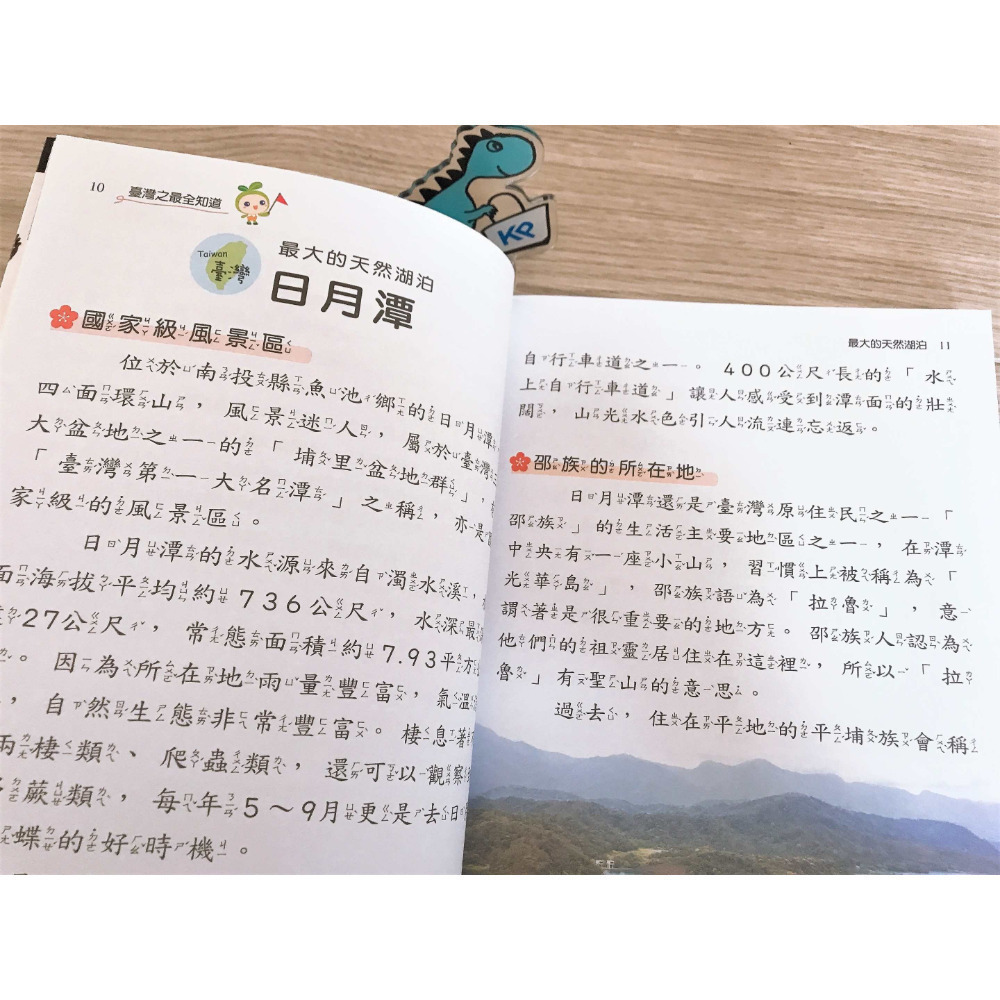 10 臺灣之最全知道
Taiwan
臺灣
最大的天然湖泊
日月潭
國家級風景區
位於南投縣魚池鄉的日月潭
四面環山,風景迷人,屬於臺灣
大盆地之一的「埔里盆地群」,
「臺灣第一大名潭」之稱,亦是
家級的風景區。
日月潭的水源來自濁水溪,
面海拔平均約736公尺,水深最
27公尺,常態面積約7.93平方
。因為所在地雨量豐富,氣溫
,自然生態非常豐富。棲息著
兩棲類、爬蟲類,還可以觀察
蕨類,每年5~9月更是去日
蝶的好時機。
KP
最大的天然湖泊 11
自行車道之一。400公尺長的「水
上自行車道」讓人感受到潭面的壯
闊,山光水色引人流連忘返。
邵族的所在地
日月潭還是臺灣原住民之一「
邵族」的生活主要地區之一,在潭
中央有一座小山,習慣上被稱為「
光華島」,邵族語為「拉魯」,意
謂著是很重要的地方。邵族人認為
他們的祖靈居住在這裡,所以「拉
魯」有聖山的意思。
過去,住在平地的平埔族會稱